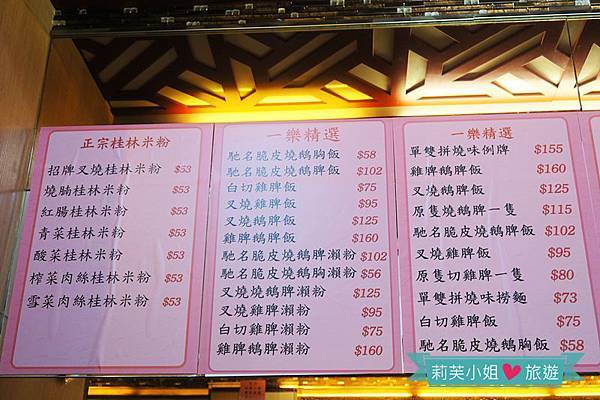 正宗桂林米粉
招牌叉燒桂林米粉 $53
燒腩桂林米粉 $53
紅腸桂林米粉 $53
青菜桂林米粉 $53
酸菜桂林米粉 $53
榨菜肉絲桂林米粉 $53
雪菜肉絲桂林米粉 $53
一樂精選
馳名脆皮燒鵝胸飯 $58
馳名脆皮燒鵝脾飯 $102
白切雞脾飯 $75
叉燒雞飯 $95
叉燒鵝脾飯 $125
雞脾鵝脾飯 $160
馳名脆皮燒鵝脾瀨粉 $102
馳名脆皮燒鵝胸瀨粉 $56
叉燒燒鵝脾瀨粉 $125
叉燒雞脾瀨粉 $95
白切雞脾瀨粉 $75
雞脾鵝脾瀨粉 $160
一樂精選
單雙拼燒味例牌 $155
雞脾鵝脾飯 $160
叉燒鵝脾飯 $125
原隻燒鵝脾一隻 $115
馳名脆皮燒鵝脾飯 $102
叉燒雞脾飯 $95
原隻切雞脾一隻 $80
單雙拼燒味撈麵 $73
白切雞脾飯 $75
馳名脆皮燒鵝胸飯 $58
莉芙小姐♥旅遊